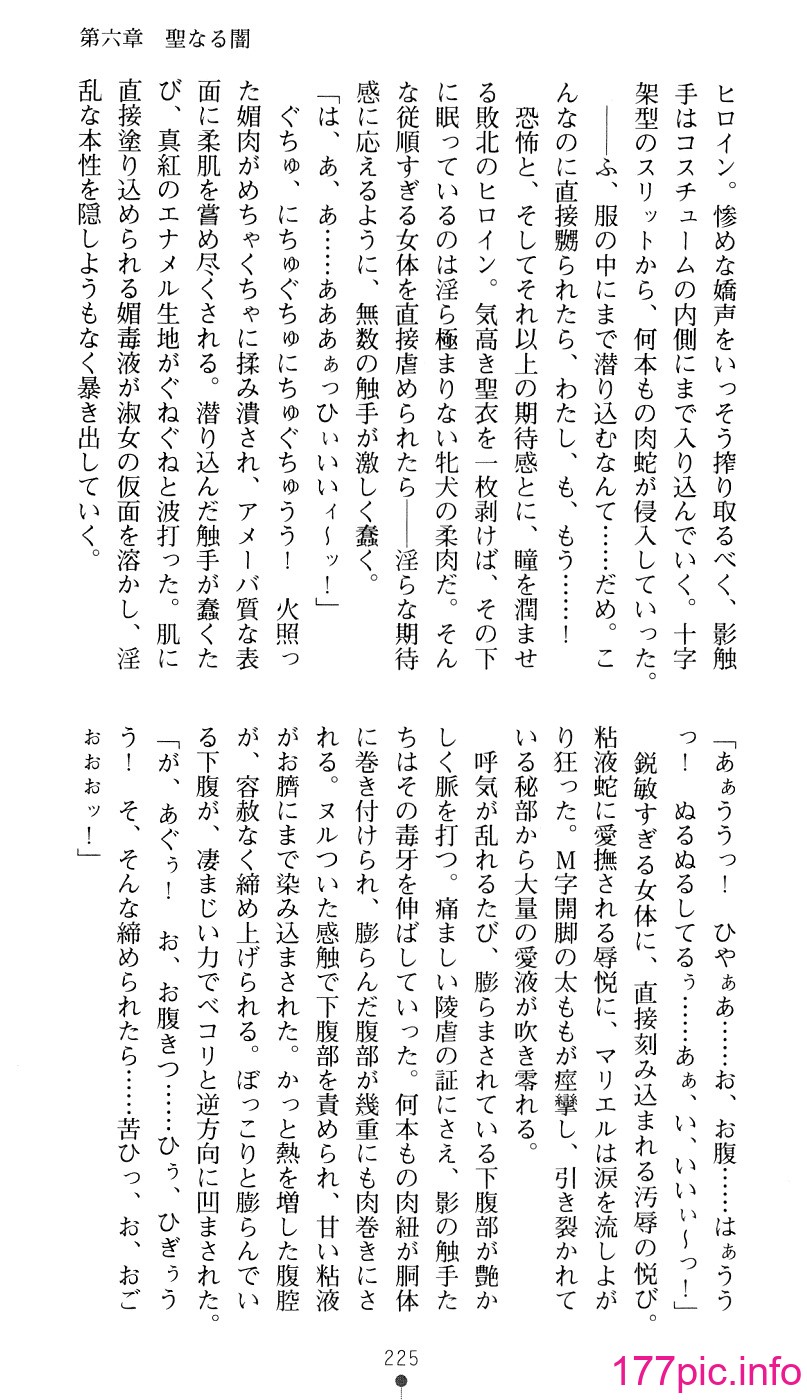 第六章　聖なる闇
ヒロイン。惨めな嬌声をいっそう搾り取るべく、影触
手はコスチュームの内側にまで入り込んでいく。十字
架型のスリットから、何本もの肉蛇が侵入していった。
――ふ、服の中にまで潜り込むなんて……だめ。こ
んなのに直接嬲られたら、わたし、も、もう……！
恐怖と、そしてそれ以上の期待感とに、瞳を潤ませ
る敗北のヒロイン。気高き聖衣を一枚剥けば、その下
に眠っているのは淫ら極まりない牝犬の柔肉だ。そん
な従順すぎる女体を直接虐められたら――淫らな期待
感に応えるように、無数の触手が激しく蠢く。
「は、あ、あ……あああぁっひぃいいィ～ッ！」
ぐちゅ、にちゅぐちゅにちゅぐちゅうう！　火照っ
た媚肉がめちゃくちゃに揉み潰され、アメーバ質な表
面に柔肌を嘗め尽くされる。潜り込んだ触手が蠢くた
び、真紅のエナメル生地がぐねぐねと波打った。肌に
直接塗り込められる媚毒液が淑女の仮面を溶かし、淫
乱な本性を隠しようもなく暴き出していく。
「あぁううっ！　ひやぁあ……お、お腹……はぁうう
っ！　ぬるぬるしてるぅ……あぁ、い、いいぃ～っ！」
鋭敏すぎる女体に、直接刻み込まれる汚辱の悦び。
粘液蛇に愛撫される辱悦に、マリエルは涙を流しよが
り狂った。Ｍ字開脚の太ももが痙攣し、引き裂かれて
いる秘部から大量の愛液が吹き零れる。
呼気が乱れるたび、膨らまされている下腹部が艶か
しく脈を打つ。痛ましい陵虐の証にさえ、影の触手た
ちはその毒牙を伸ばしていった。何本もの肉紐が胴体
に巻き付けられ、膨らんだ腹部が幾重にも肉巻きにさ
れる。ヌルついた感触で下腹部を責められ、甘い粘液
がお臍にまで染み込まされた。かっと熱を増した腹腔
が、容赦なく締め上げられる。ぼっこりと膨らんでい
る下腹が、凄まじい力でベコリと逆方向に凹まされた。
「が、あぐぅ！　お、お腹きつ……ひぅ、ひぎぅう
う！　そ、そんな締められたら……苦ひっ、お、おご
ぉぉぉッ！」
225
177pic.info